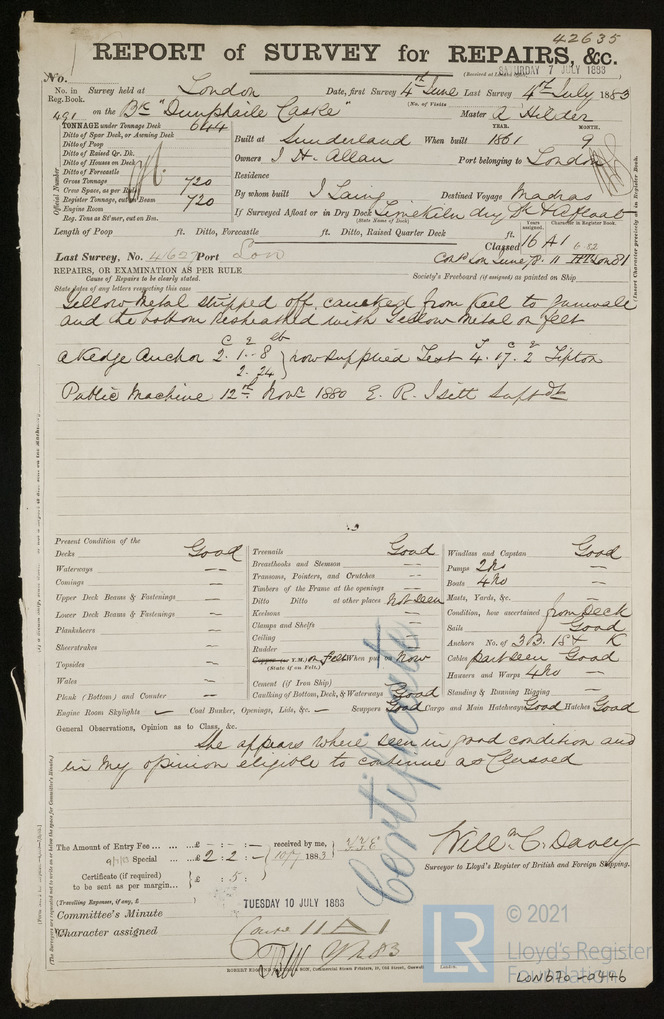 42635
REPORT of SURVEY for REPAIRS, &c.
(Received at London Office SATURDAY 7 JULY 1883)
No.
No. in Reg. Book. Survey held at London Date, first Survey 4th June Last Survey 4th July 1883
(No. of Visits
491 on the Bk "Dunphaile Castle" Master A Hilder
TONNAGE under Tonnage Deck 644
Ditto of Spar Deck, or Awning Deck
Ditto of Poop
Ditto of Raised Qr. Dk.
Ditto of Houses on Deck
Ditto of Forecastle
Gross Tonnage 720
Crew Space, as per Rule
Register Tonnage, cut on Beam 720
Engine Room
Reg. Tons as St'mer, cut on Bea.
Official Number
YEAR. MONTH.
Built at Sunderland When built 1861 9
Owners J H. Allan Port belonging to London
Residence
By whom built J Laing Destined Voyage Madras
If Surveyed Afloat or in Dry Dock Limekiln dry Dk & Afloat
(State Name of Dock)
Length of Poop ft. Ditto, Forecastle ft. Ditto, Raised Quarter Deck ft.
Years assigned. Character in Register Book.
Classed 16 A1 6.82
Last Survey, No. 41627 Port Lon
REPAIRS, OR EXAMINATION AS PER RULE
Society's Freeboard (if assigned) as painted on Ship
Cause of Repairs to be clearly stated.
State dates of any letters respecting this case
Yellow Metal stripped off, caulked from Keel to Gunwale
and the bottom resheathed with Yellow Metal on felt
C Q lb T C Q
A Kedge Anchor 2. 1.. 8 } now supplied Test 4. 17. 2 Tipton
2. 24
Public Machine 12th Novr 1880 E. R. Isitt Suptdt
Present Condition of the
Decks Good
Waterways —
Comings —
Upper Deck Beams & Fastenings —
Lower Deck Beams & Fastenings —
Planksheers —
Sheerstrakes —
Topsides —
Wales —
Plank (Bottom) and Counter —
Treenails Good
Breasthooks and Stemson —
Transoms, Pointers, and Crutches —
Timbers of the Frame at the openings —
Ditto Ditto at other places Not seen
Keelsons —
Clamps and Shelfs —
Ceiling —
Rudder —
Copper (or Y.M.) on felt When put on now
(State if on Felt.)
Cement (if Iron Ship)
Caulking of Bottom, Deck, & Waterways Good
Windlass and Capstan Good
Pumps 2 No —
Boats 4 No —
Masts, Yards, &c. —
Condition, how ascertained from Deck
Sails Good
Anchors No. of 3 B. 1 St K
Cables part seen Good
Hawsers and Warps 4 No —
Standing & Running Rigging —
Engine Room Skylights — Coal Bunker, Openings, Lids, &c. — Scuppers Good Cargo and Main Hatchways Good Hatches Good
General Observations, Opinion as to Class, &c.
She appears where seen in good condition and
in my opinion eligible to continue as Classed
Certificate
The Amount of Entry Fee ... £ - : - : - received by me,
Special ... £ 2 : 2 : - 10/7 1883
Certificate (if required) to be sent as per margin... £ : 5 :
(Travelling Expenses, if any, £
Will m C. Davey
Surveyor to Lloyd's Register of British and Foreign Shipping.
Committee's Minute TUESDAY 10 JULY 1883
Character assigned
ROBERT EDMUND BARNES & SON, Commercial Steam Printers, 19, Old Street, Goswell London.
LR
© 2021
Lloyd's Register
Foundation
LON670-0446